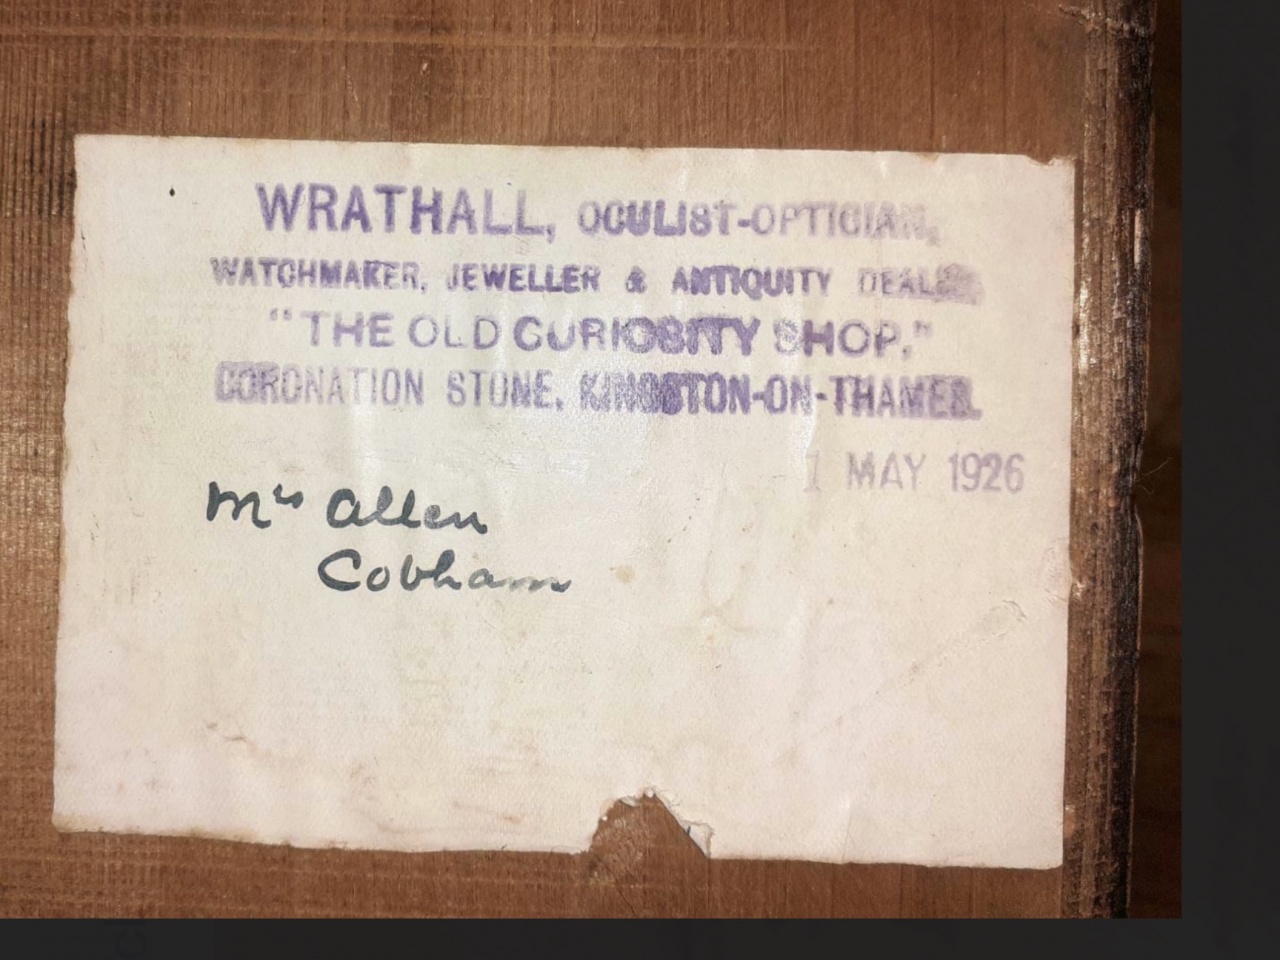 WRATHALL, OCULIST-OPTICIAN,
WATCHMAKER, JEWELLER & ANTIQUITY DEALER,
"THE OLD CURIOSITY SHOP,"
CORONATION STONE, KINGSTON-ON-THAMES.
1 MAY 1926
Mrs Allen
Cobham